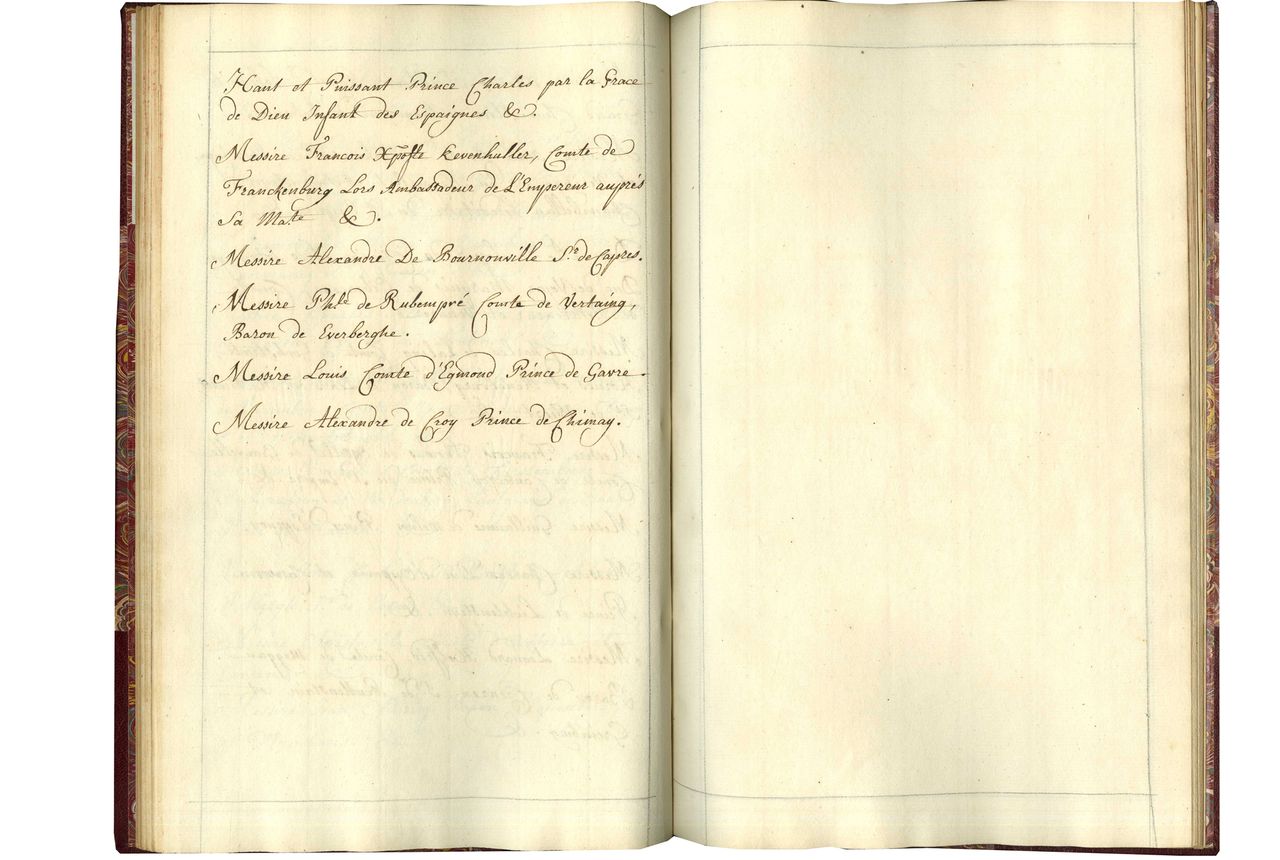 Haut et Puissant Prince Charles par la Grace
de Dieu Infant des Espaignes &.
Messire Francois Xpofle Kevenhuller, Comte de
Franckenburg Lors Ambassadeur de L'Empereur auprés
Sa Mate &.
Messire Alexandre De Bournonville Sr. de Capres.
Messire Phle de Rubempré Comte de Vertaing,
Baron de Everberghe.
Messire Louis Comte d'Egmond Prince de Gavre.
Messire Alexandre de Croy Prince de Chimay.